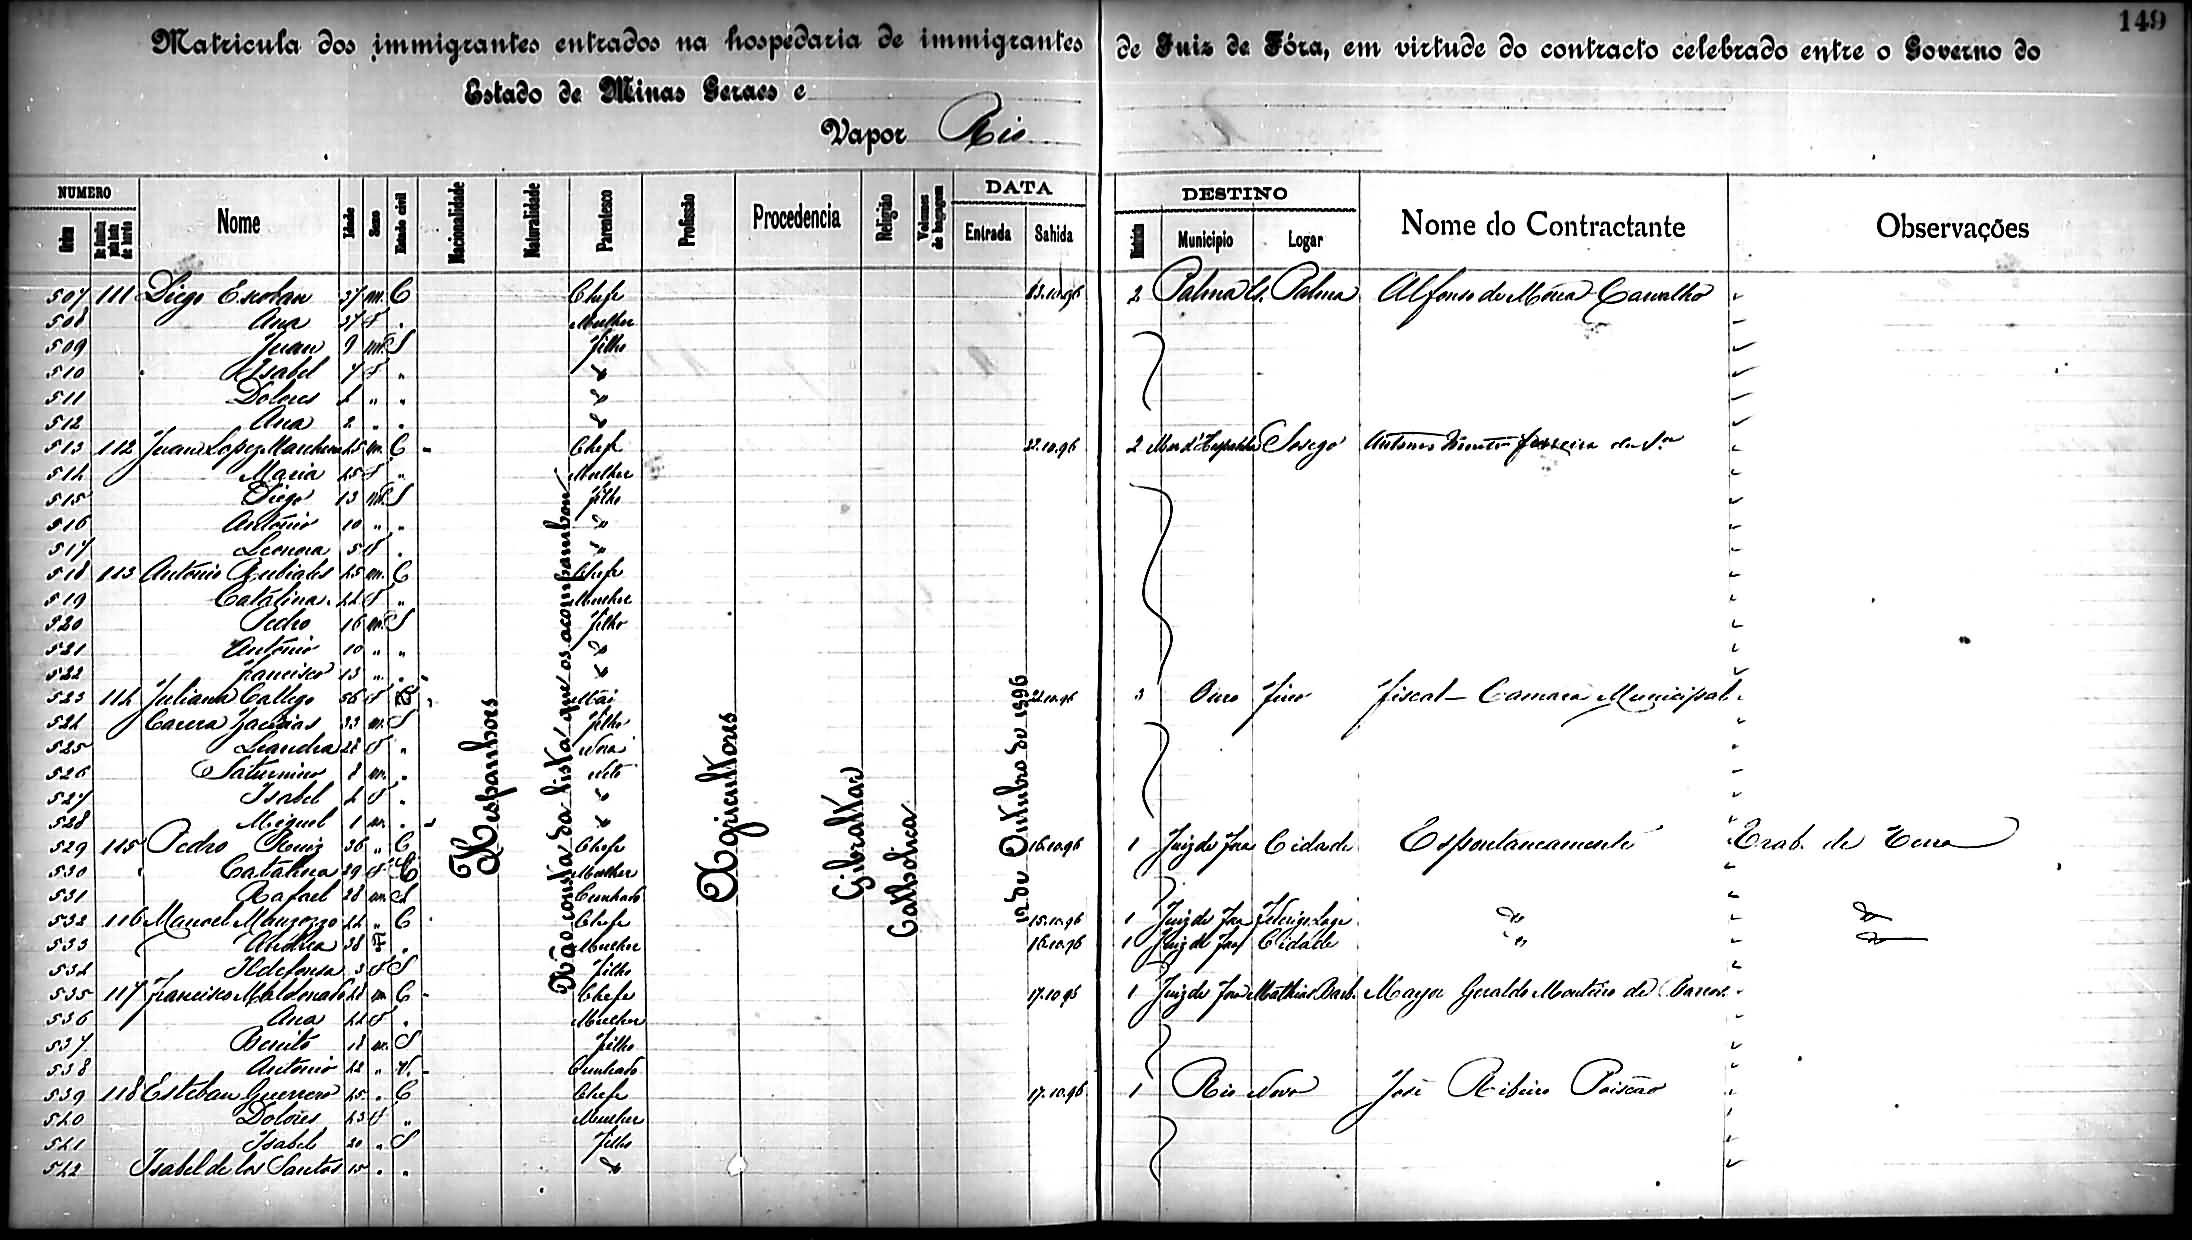 149
Matricula dos immigrantes entrados na hospedaria de immigrantes de Juiz de Fóra, em virtude do contracto celebrado entre o Governo do
Estado de Minas Geraes e
Vapor Rio
NUMERO DATA DESTINO
Nome Idade Sexo Estado civil Nacionalidade Naturalidade Parentesco Profissão Procedencia Religião Volumes de bagagem Entrada Sahida Municipio Logar Nome do Contractante Observações
507 111 Diego Escoban 37 m. C Chefe 13.10.96 2 Palma C. Palma Alfonso de Moura Carvalho
508 Ana 37 f . Mulher
509 Juan 9 m. S filho
510 Isabel 7 f " "
511 Dolores " . "
512 Ana 2 " . "
513 112 Juan Lopez 45 m. C Chefe 22.10.96 2 Mar d'Hespanha Socego Antonio Ferreira da Sa
514 Maria 45 f " Mulher
515 Diego 13 m. S filho
516 Antonio 10 " . "
517 Leonora 5 f . "
518 113 Antonio Rubiales 45 m. C Chefe
519 Catalina 44 f " Mulher
520 Pedro 16 m. S filho
521 Antonio 10 " " "
522 Francisco 13 " . "
523 114 Juliana Gallego 56 f Mãi 22.10.96 3 Ouro Fino Fiscal Camara Municipal
524 Zacarias 33 m. S filho
525 Leandra 28 f " Nora
526 Saturnino 8 m. . Neto
527 Isabel 4 f . "
528 Miguel 1 m. . "
529 115 Pedro Ruiz 36 " C Chefe 16.10.96 1 Juiz de Fora Cidade Espontaneamente Trab. de Terra
530 Catalina 29 f C Mulher
531 Rafael 28 m S Cunhado
532 116 Manoel 44 " C Chefe 15.10.96 1 Juiz de Fora " "
533 Andrea 38 F . Mulher 16.10.96 1 Juiz de Fora Cidade " "
534 Ildefonsa 3 f S filho
535 117 Francisco Maldonado 48 m C Chefe 17.10.96 1 Juiz de Fora Mathias Barb. Major Geraldo Monteiro de Barros
536 Ana 44 f . Mulher
537 Benito 18 m. S filho
538 Antonio 42 " V. Cunhado
539 118 Esteban Guerrero 45 . C Chefe 17.10.96 1 Rio Novo José Ribeiro
540 Dolores 43 f " Mulher
541 Isabel 20 " S filho
542 Isabel de los Santos 15 . . "
Hespanhoes
Não consta da lista que os acompanhou
Agricultores
Gibraltar
Catholica
12 de Outubro de 1896